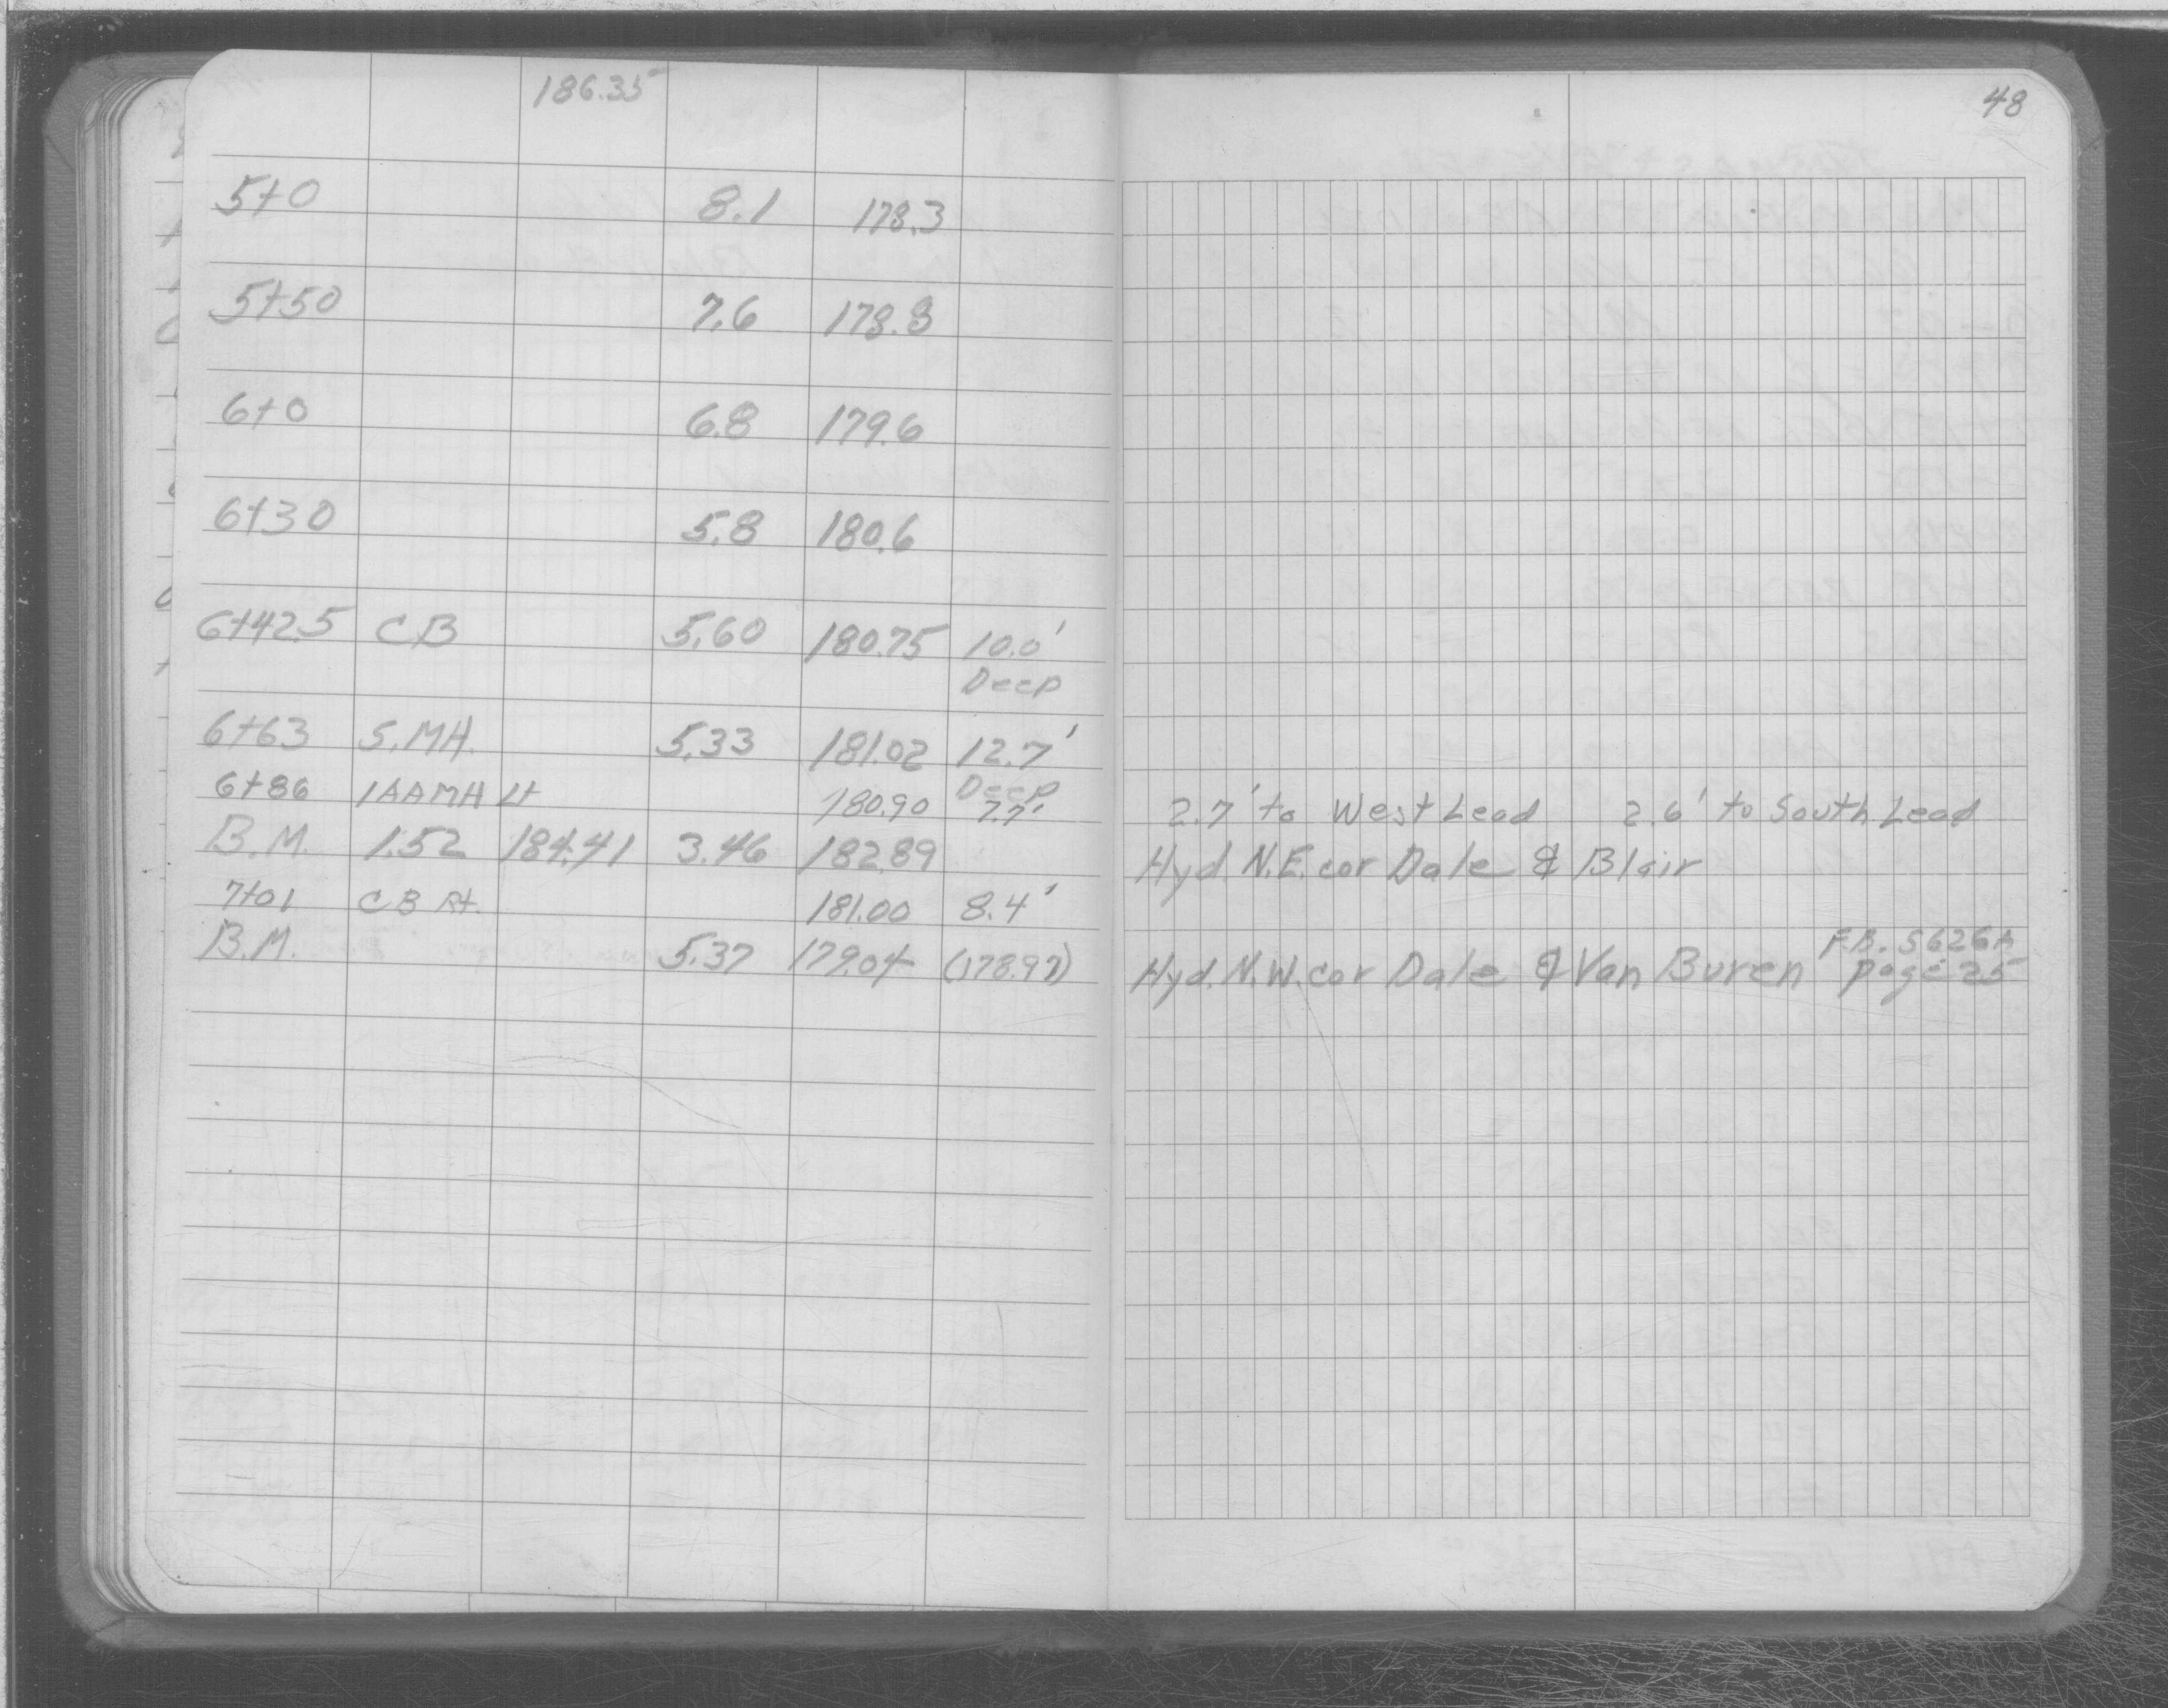 186.35
48
5+0 8.1 178.3
5+50 7.6 178.8
6+0 6.8 179.6
6+30 5.8 180.6
6+42.5 CB 5.60 180.75 10.0'
Deep
6+63 S.MH. 5.33 181.02 12.7'
Deep
6+86 1AAMH Lt 180.90 7.7' 2.7' to West Lead 2.6' to South Lead
B.M. 1.52 184.41 3.46 182.89 Hyd. N.E. cor Dale & Blair
7+01 CB Rt. 181.00 8.4'
F.B. 5626A
B.M. 5.37 179.04 (178.97) Hyd. N.W. cor Dale & Van Buren page 25